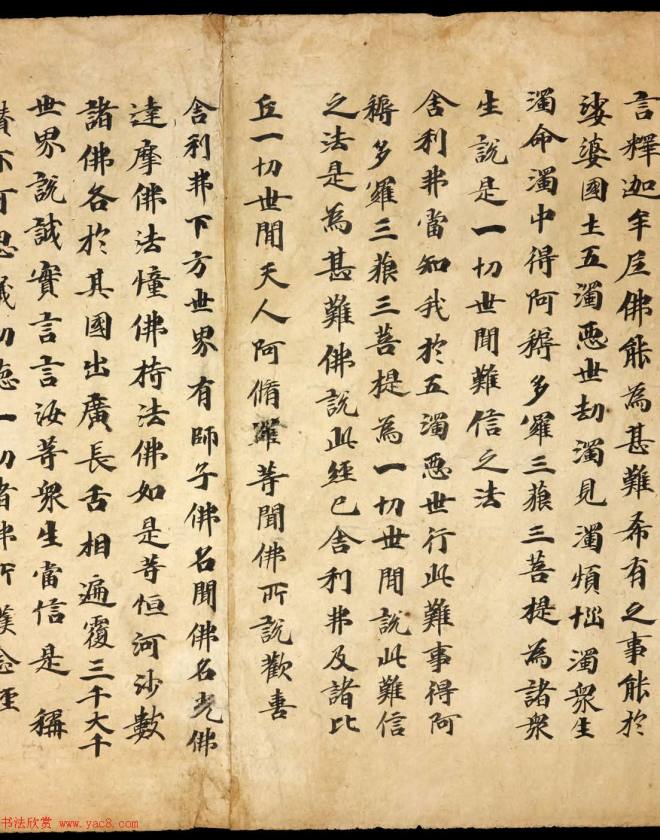 言釋迦牟尼佛能為甚難希有之事能於
娑婆國土五濁惡世劫濁見濁煩惱濁衆生
濁命濁中得阿耨多羅三藐三菩提為諸衆
生說是一切世間難信之法
舍利弗當知我於五濁惡世行此難事得阿
耨多羅三藐三菩提為一切世間說此難信
之法是為甚難佛說此經已舍利弗及諸比
丘一切世間天人阿脩羅等聞佛所說歡喜
舍利弗下方世界有師子佛名聞佛名光佛
達摩佛法幢佛持法佛如是等恒河沙數
諸佛各於其國出廣長舌相遍覆三千大千
世界說誠實言言汝等衆生當信是稱
讚不可思議功德一切諸佛所護念經
书法欣赏 www.yac8.com